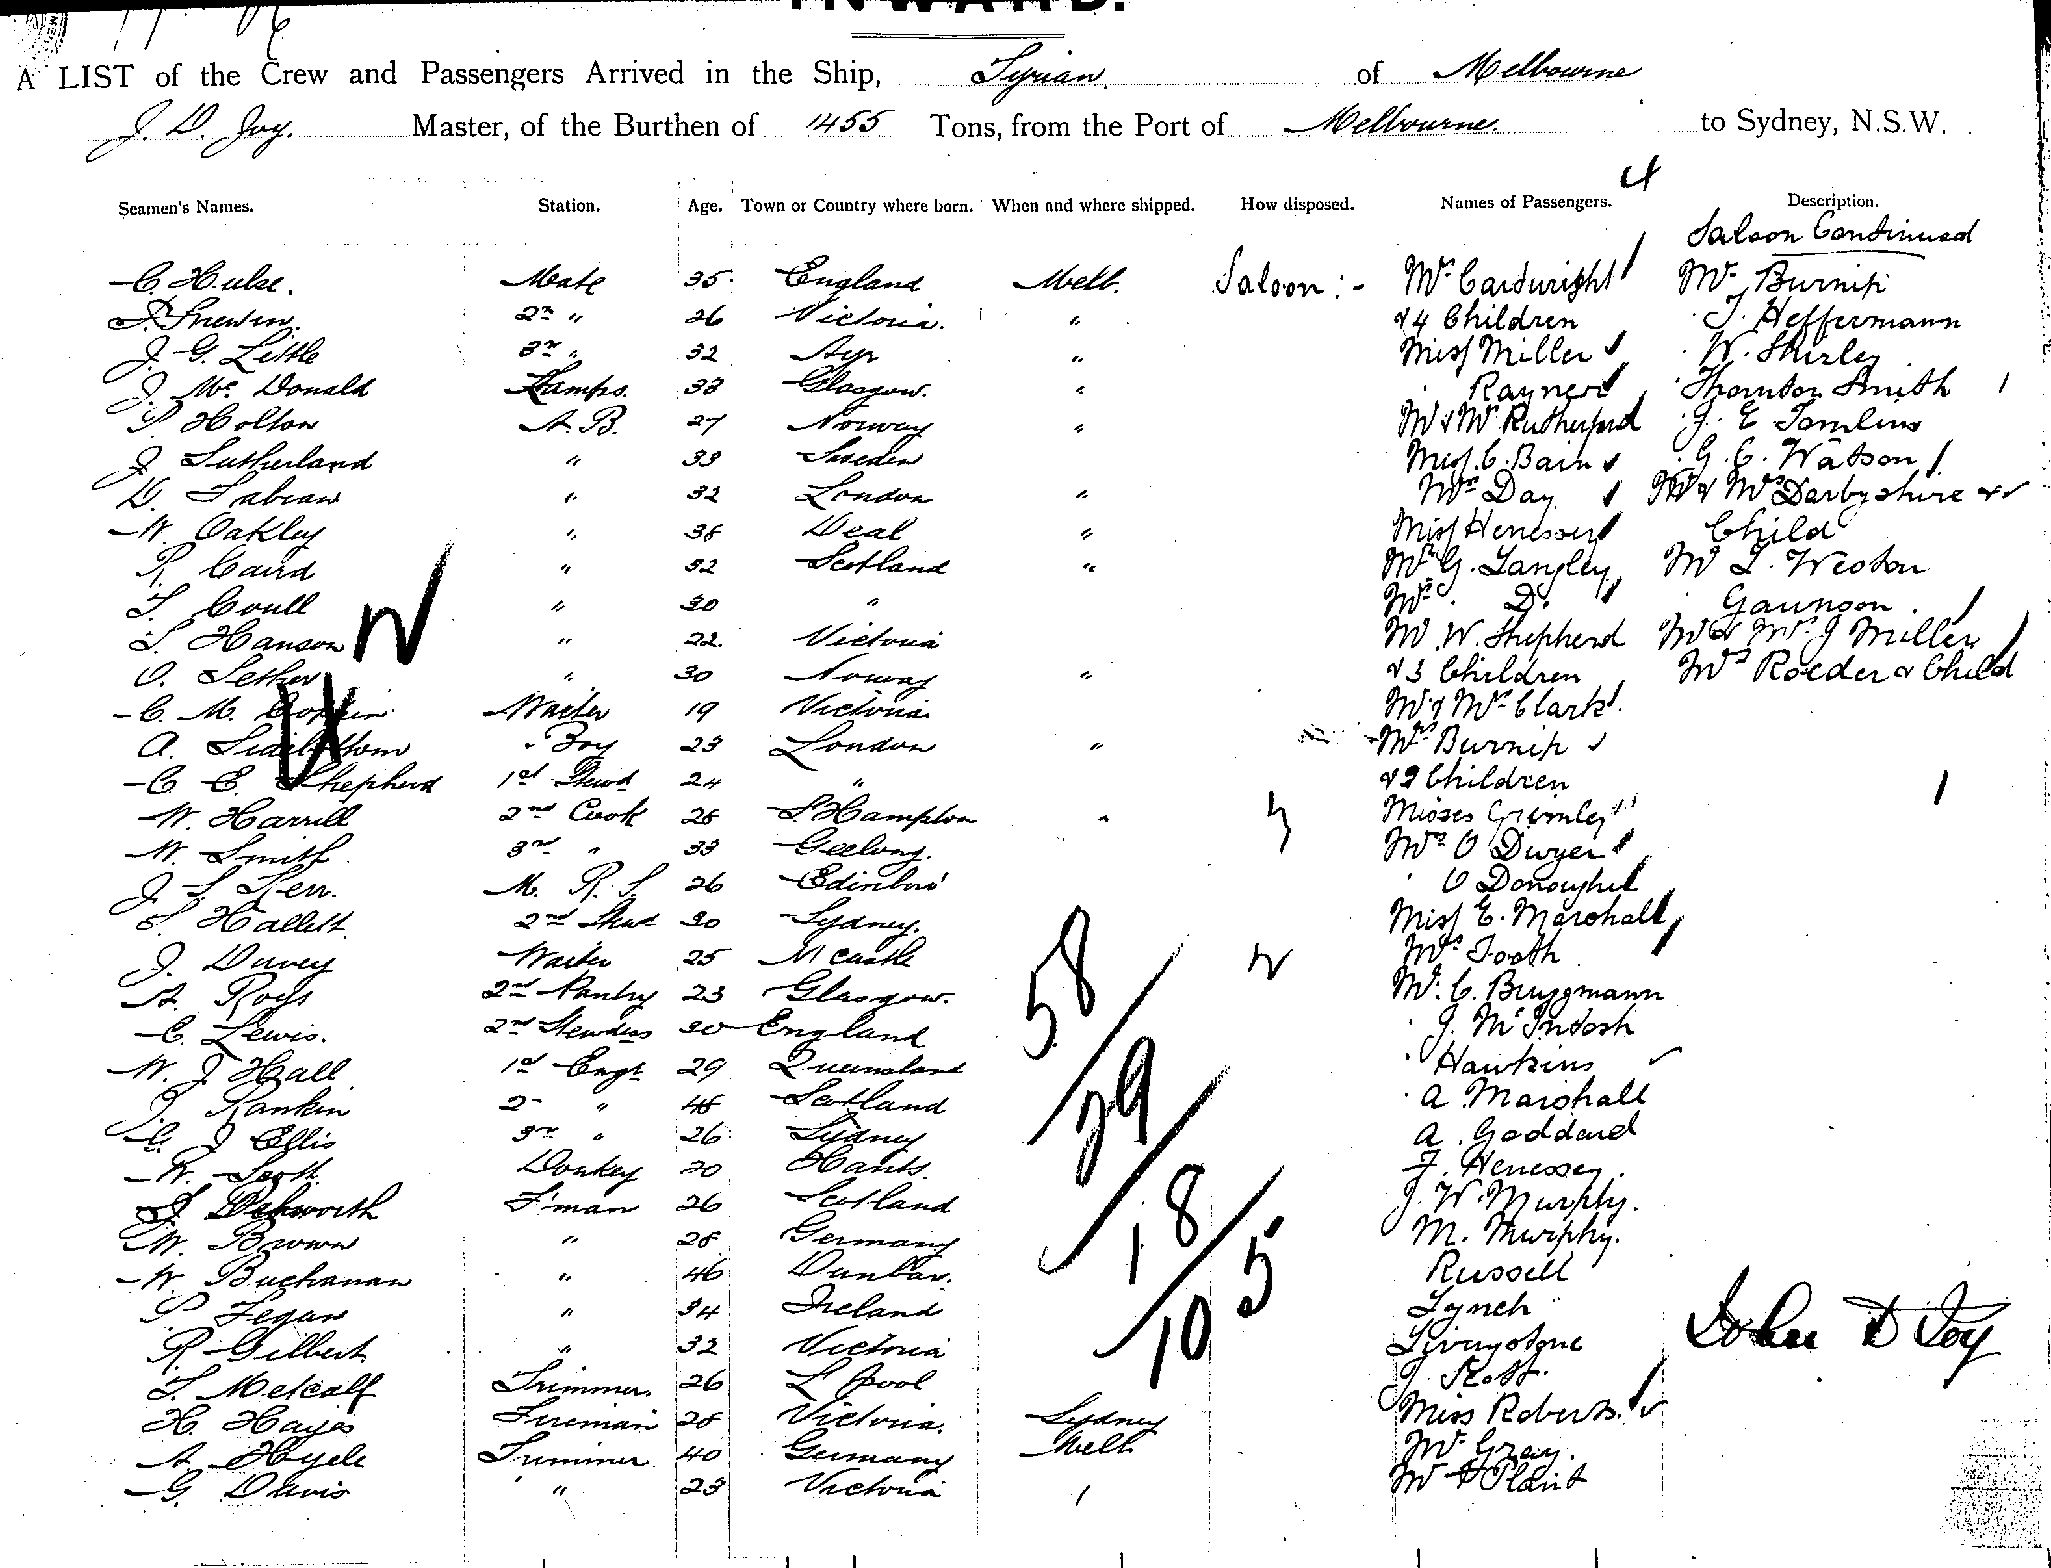 INWARD.
A LIST of the Crew and Passengers Arrived in the Ship, Syrian of Melbourne
J. D. Joy. Master, of the Burthen of 1455 Tons, from the Port of Melbourne. to Sydney, N.S.W.
4
Seamen's Names. Station. Age. Town or Country where born. When and where shipped. How disposed. Names of Passengers. Description.
Saloon Continued
C Hulse. Mate 35 England Melb. Saloon :- Mrs Cartwright Mr Burnip
2nd " 26 Victoria. " & 4 Children T. Heffermann
J. G. Little 3rd " 32 Ayr " Miss Miller W. Shirley
J. Mc Donald Lamps. 33 Glasgow. " Rayner Thornton Smith
P Holton A. B. 27 Norway " Mr & Mrs Rutherford J. E Tomlins
J. Sutherland " 33 Sweden Miss C. Bain G. C. Watson
D. Fabian " 32 London " Mrs Day Mr & Mrs Darbyshire &
W. Oakley " 38 Deal " Miss Henessey Child
R. Caird " 32 Scotland " Mr G. Langley Mr T. Weston
T. Coull " 30 " Mrs D. Gaunson.
S. Hanson " 22 Victoria Mr W. Shepherd Mr & Mrs J Miller
O. Sether " 30 Norway " & 3 Children Mrs Roeder & Child
C. M. Waiter 19 Victoria Mr & Mrs Clark
A. Sidebottom " Boy 23 London " Mrs Burnip
C. E. Shepherd 1st Stewd 24 " & 2 Children
W. Harrill 2nd Cook 28 S. Hampton " Misses Grumley
W. Smith 3rd " 33 Geelong. Mrs O Dwyer
J. S. Kerr. M. R. S. 26 Edinboro' " O Donoghue
S. Hallett 2nd Stwd 30 Sydney. Miss E. Marshall
J. Davey Waiter 25 N castle Mrs Tooth
A. Ross 2nd Pantry 23 Glasgow. Mr. C. Bruggmann
C. Lewis. 2nd Stewdess 30 England J. McIntosh
W. J Hall 1st Engr 29 Queensland Hawkins
J. Rankin 2nd " 48 Scotland A Marshall
G. J Ellis 3rd " 26 Sydney A. Goddard
W. Scott Donkey 20 Hants. F. Henessey.
J. F'man 26 Scotland J. W. Murphy.
W. Brown " 28 Germany M. Murphy.
W Buchanan " 46 Dunbar. Russell
P. Fegan " 34 Ireland Lynch
R Gilbert " 32 Victoria Livingstone
T. Metcalf Trimmer. 26 L'pool J. Rott.
H. Hayes Fireman 28 Victoria. Sydney Miss Roberts.
A Hyde Trimmer 40 Germany Melb. Mr Gray.
G. Davis " 23 Victoria Mr Plant
58
29
18
105
John D Joy